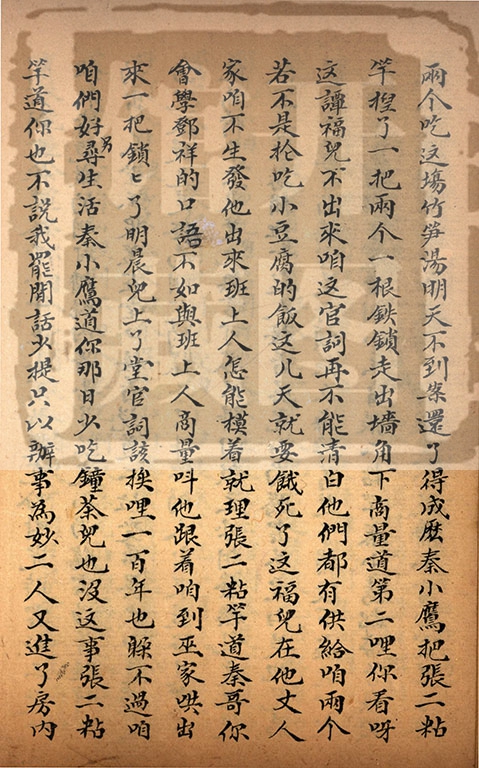 兩个吃这塲竹笋湯明天不到案還了得成麽秦小鷹把張二粘
竿揑了一把兩个一根鉄鎖走出墻角下商量道第二哩你看呀
这譚福兒不出來咱这官詞再不能清白他們都有供給咱兩个
若不是抡吃小豆腐的飯这儿天就要餓死了這福兒在他丈人
家咱不生發他出來班上人怎能模着就理張二粘竿道秦哥你
會學鄧祥的口語不如與班上人商量呌他跟着咱到巫家哄出
來一把鎖鎖了明晨兒上了堂官詞該挨哩一百年也躲不過咱
咱們好另尋生活秦小鷹道你那日少吃鐘茶兒也没这事張二粘
竿道你也不說我罷閒話少提只以辦事為妙二人又進了房内